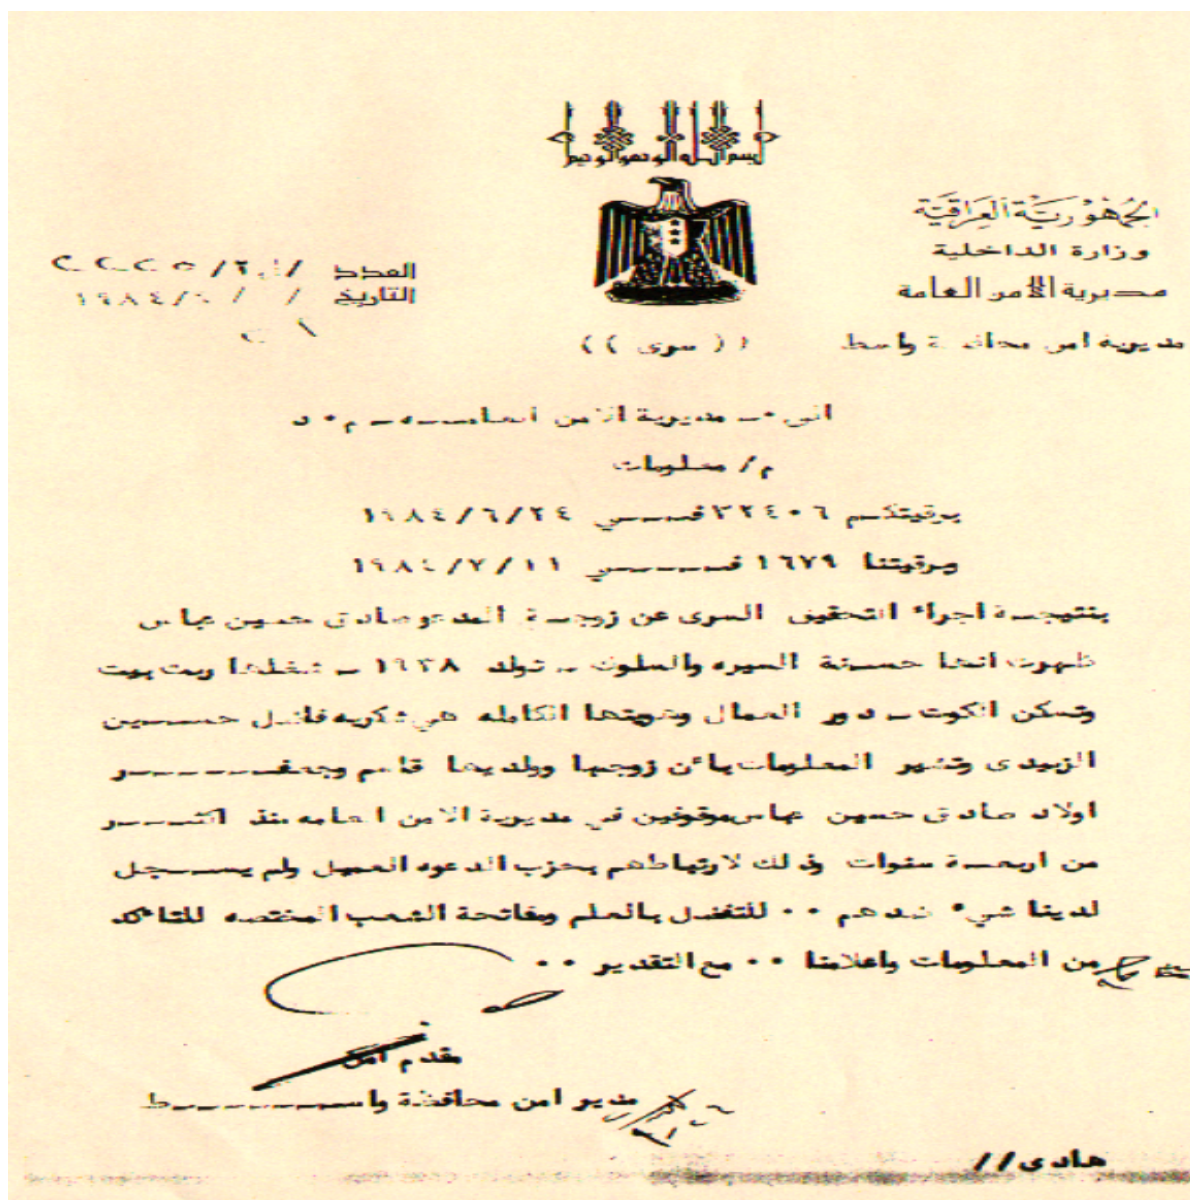 بسم الله الرحمن الرحيم
الجمهورية العراقية
وزارة الداخلية
مديرية الأمن العامة
مديرية امن محافظة واسط
العدد /
التاريخ / / ١٩٨٤
(( سرى ))
الى ٠ـ مديرية الامن العامـــة ـ م ٠ د
م / معلومات
برقيتكم ٣٢٤٠٦ فـــي ١٩٨٤/٦/٢٤
وبرقيتنا ١٦٧٩ فــــــي ١٩٨٤/٧/١١
بنتيجـة اجراء التحقيق السرى عن زوجـة المدعو صادق حسين عباس
ظهرت انها حسـنة السيره والسلوك ـ تولد ١٩٣٨ ـ شغلها ربت بيت
وتسكن الكوت ـ دور العمال وهويتها الكامله هي شكريه فاضل حســين
الزبيدى وتشير المعلومات بائن زوجها وولديها قاسم وجعفــــــر
اولاد صادق حسين عباس موقوفين في مديرية الامن العامه منذ اكثـــر
من اربعـة سنوات وذلك لارتباطهم بحزب الدعوه العميل ولم يســـجل
لدينا شيء ضدهم ٠٠ للتفضل بالعلم ومفاتحة الشعب المختصه للتاءكد
من المعلومات واعلامنا ٠٠ مع التقدير ٠٠
مقدم امن
مدير امن محافظة واســــــــط
هادى //